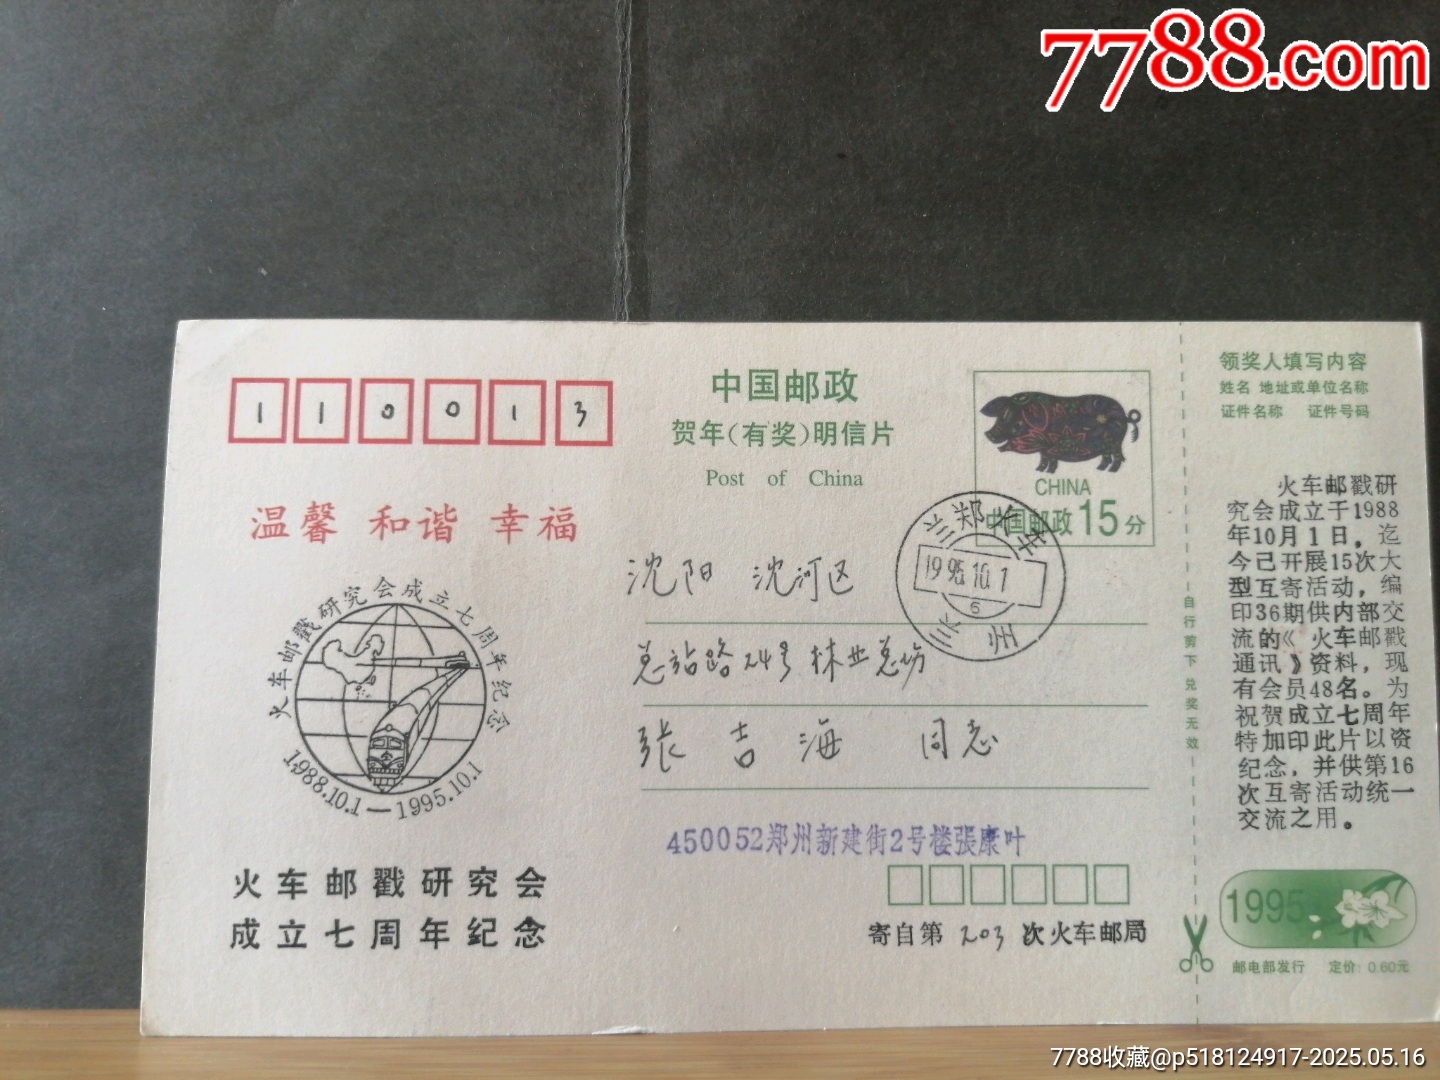 7788.com
110013
中国邮政
贺年(有奖)明信片
Post of China
CHINA
中国邮政 15分
领奖人填写内容
姓名 地址或单位名称
证件名称 证件号码
温馨 和谐 幸福
火车邮戳研究会成立七周年纪念
1988.10.1—1995.10.1
火车邮戳研究会
成立七周年纪念
1995.10.1
6
沈阳 沈河区
总站路24号 林业总场
张吉海 同志
450052郑州新建街2号楼張康叶
寄自第 203 次火车邮局
自行剪下兑奖无效
火车邮戳研
究会成立于1988
年10月1日。迄
今己开展15次大
型互寄活动，编
印36期供内部交
流的《火车邮戳
通讯》资料，现
有会员48名。为
祝贺成立七周年
特加印此片以资
纪念，并供第16
次互寄活动统一
交流之用。
1995
邮电部发行 定价：0.60元
7788收藏@p518124917-2025.05.16